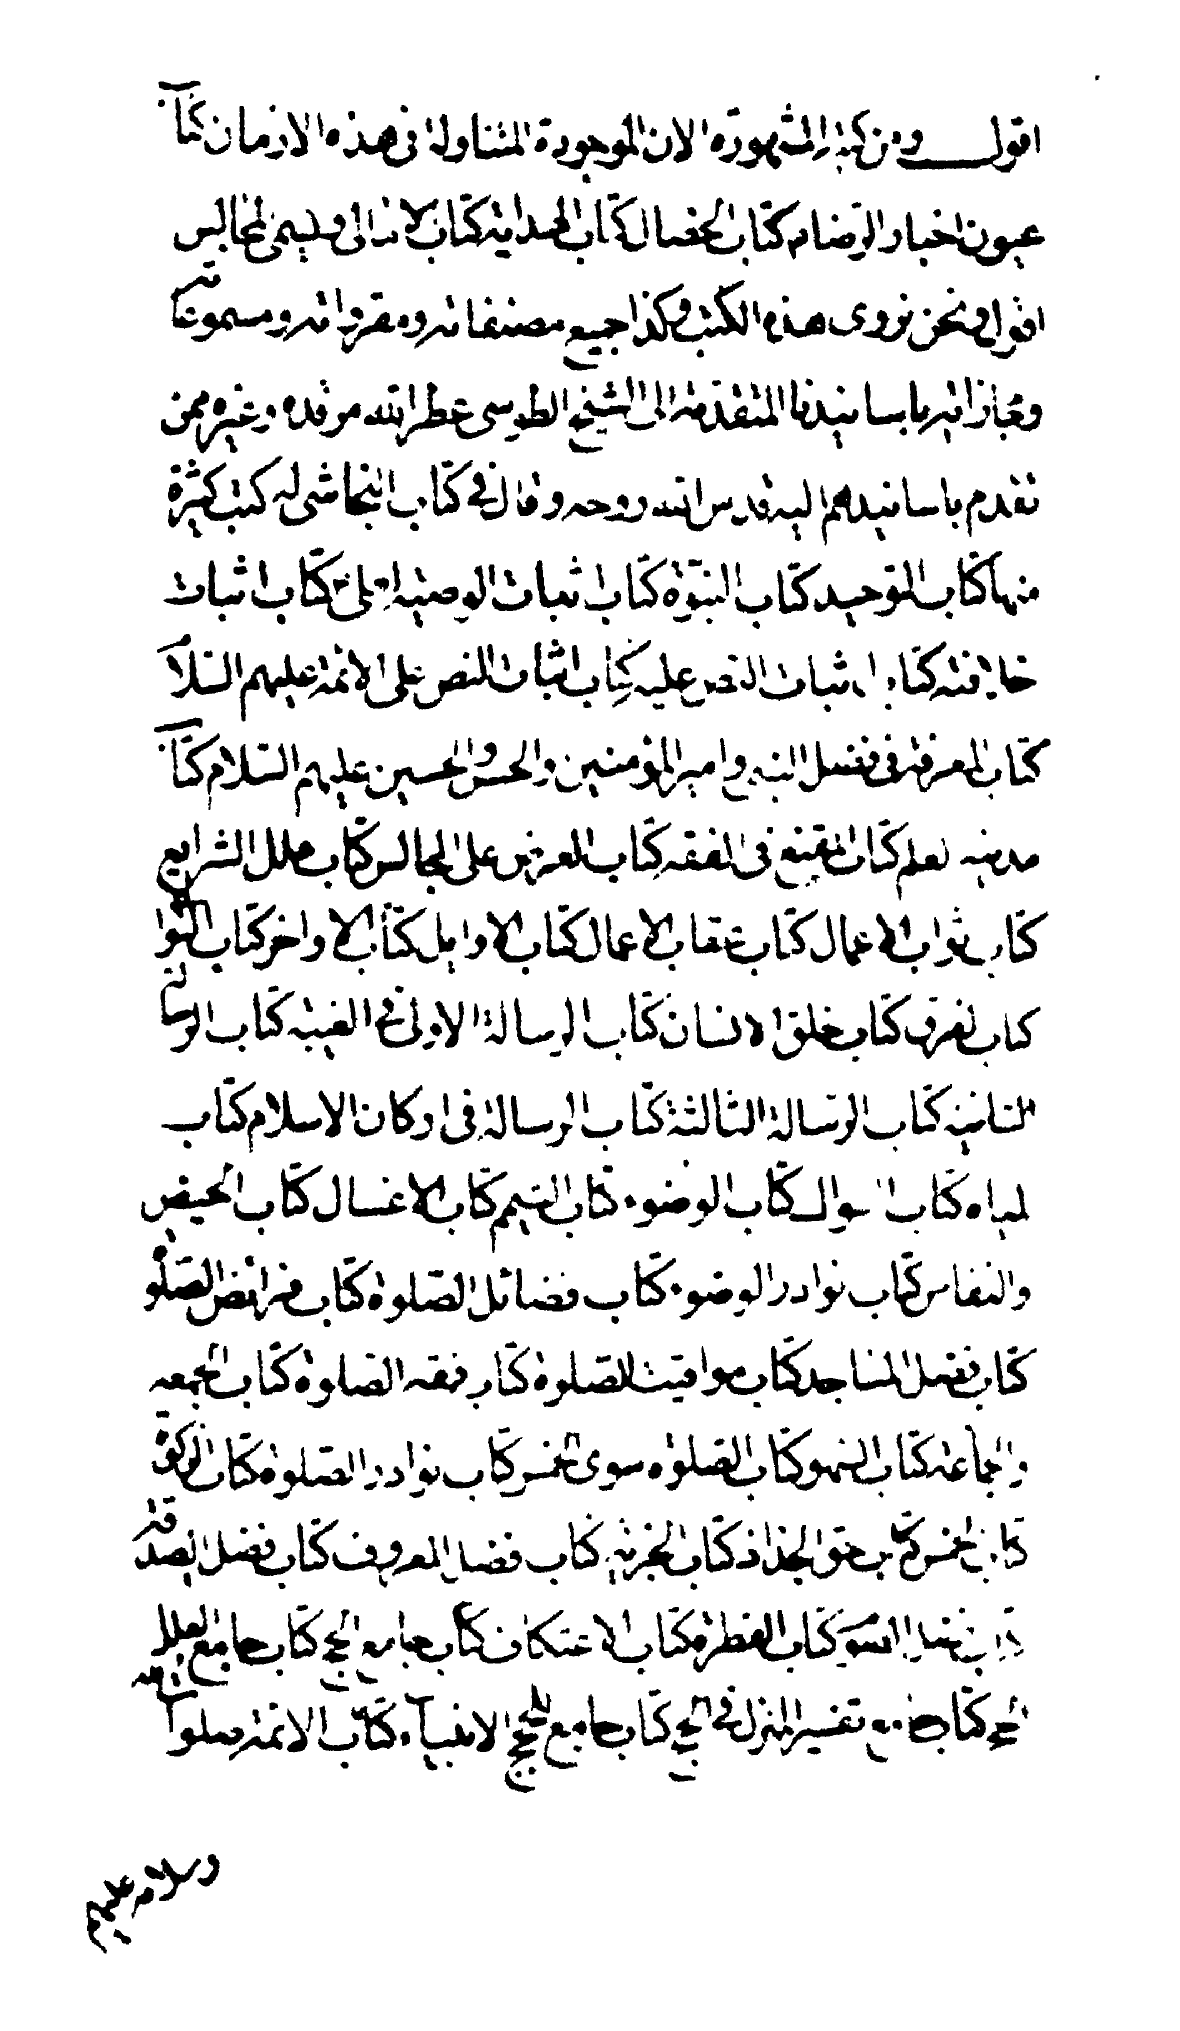 اقول ومن كتبه المشهورة الان الموجودة المتناولة في هذه الازمان كتاب
عيون اخبار الرضا م كتاب الخصال كتاب الهداية كتاب الامالى ويسمى المجالس
اقول ونحن نروى هذه الكتب وكذا جميع مصنفاته ومقرواته ومسموعاته
ومجازاته باسانيدنا المتقدمة الى الشيخ الطوسى عطر الله مرقده وغيره ممن
تقدم باسانيدهم اليه قدس الله روحه وقال في كتاب النجاشى له كتب كثيرة
منها كتاب التوحيد كتاب النبوة كتاب اثبات الوصية لعلى كتاب اثبات
خلافته كتاب اثبات النص عليه كتاب اثبات النص على الائمة عليهم السلام
كتاب المعرفة في فضل النبي وامير المؤمنين والحسن والحسين عليهم السلام كتاب
مدينه لعلم كتاب المقنع في الفقه كتاب العرض على المجالس كتاب علل الشرايع
كتاب ثواب الاعمال كتاب عقاب الاعمال كتاب الاوايل كتاب الاواخر كتاب
كتاب لفرق كتاب خلق الانسان كتاب الرسالة الاولى في الغيبة كتاب الرسالة
الثانية كتاب الرسالة الثالثة كتاب الرسالة في اركان الاسلام كتاب
لمياه كتاب السواك كتاب الوضوء كتاب التيمم كتاب الاغسال كتاب الحيض
والنفاس كتاب نوادر الوضوء كتاب فضائل الصلوة كتاب فرائض الصلوة
كتاب فضل المساجد كتاب مواقيت الصلوة كتاب فقه الصلوة كتاب الجمعه
والجماعة كتاب السهو كتاب الصلوة سوى الخمس كتاب نوادر الصلوة كتاب الزكوة
كتاب الخمس كتاب حق الجذاذ كتاب الجزية كتاب فضل المعروف كتاب فضل الصدقة
كتاب فضل الصوم كتاب الفطرة كتاب الاعتكاف كتاب جامع الحج كتاب جامع علل
الحج كتاب جامع تفسير المنزل في الحج كتاب جامع حجج الانبياء كتاب الائمة صلوات الله
وسلامه عليهم